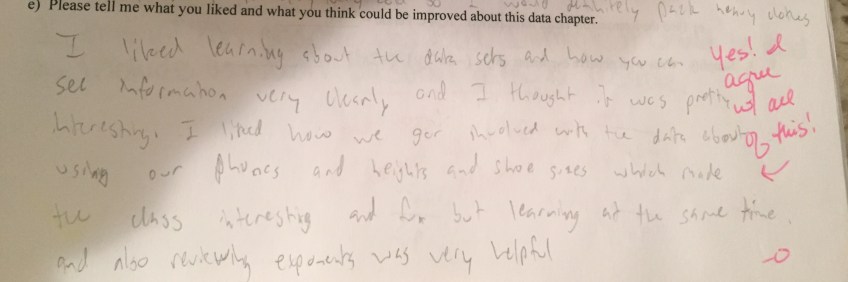 would definitely pack heavy clothes
e) Please tell me what you liked and what you think could be improved about this data chapter.
I liked learning about the data sets and how you can
see information very clearly and I thought it was pretty
interesting. I liked how we got involved with the data about
using our phones and heights and shoe sizes which made
the class interesting and fun but learning at the same time.
and also reviewing exponents was very helpful
Yes! I
agree
w/ all
of this!
-0